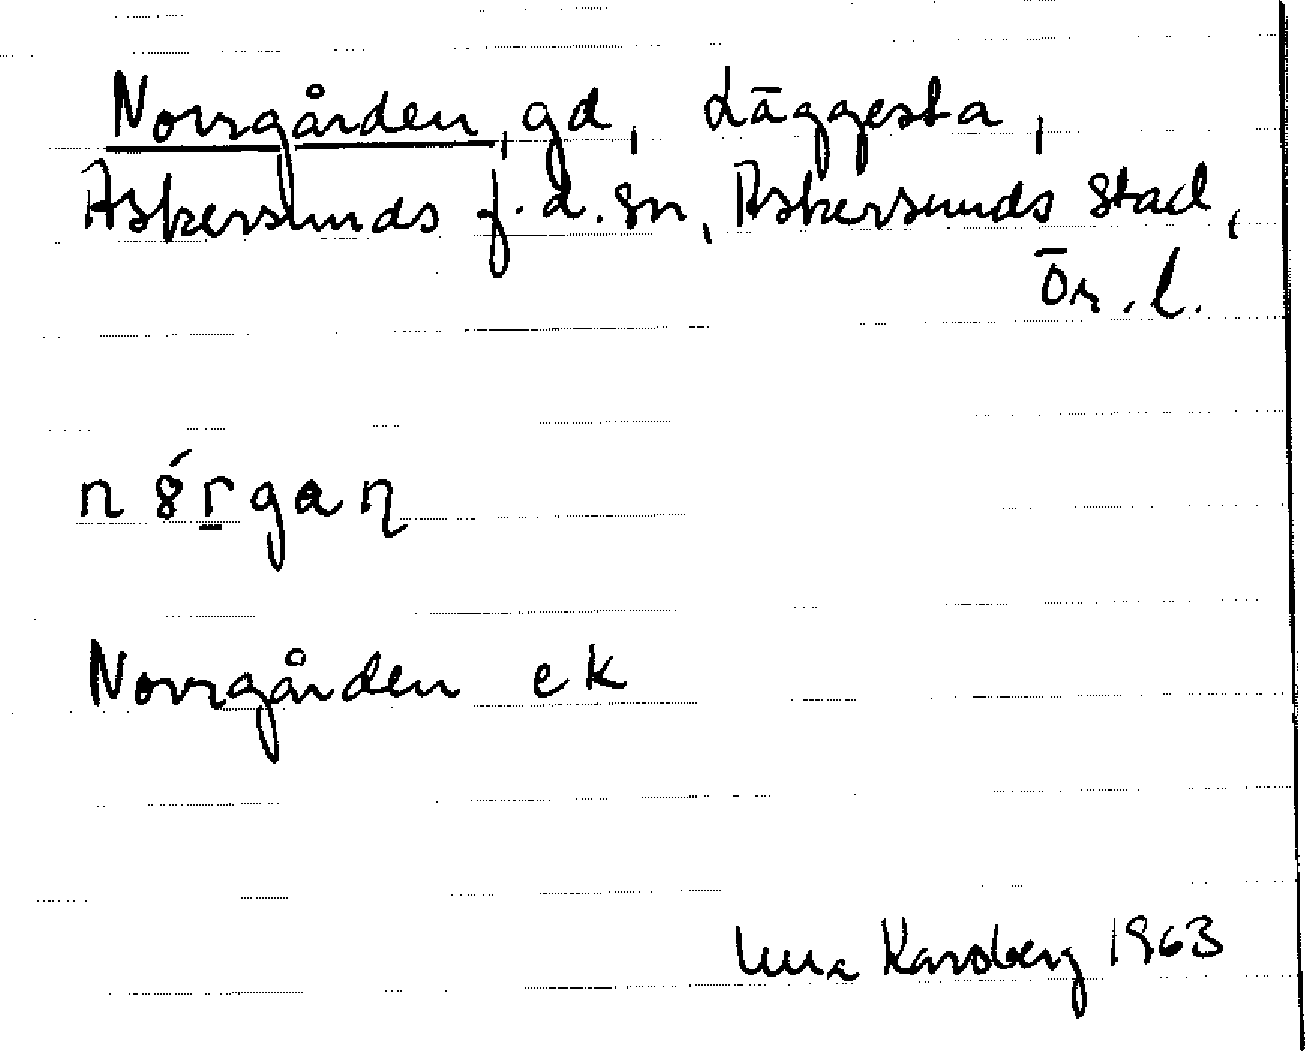 Norrgården, gd, Läggesta,
Askersunds f.d. sn, Askersunds stad,
Ör. l.
Norrgården ek
Karsberg 1963